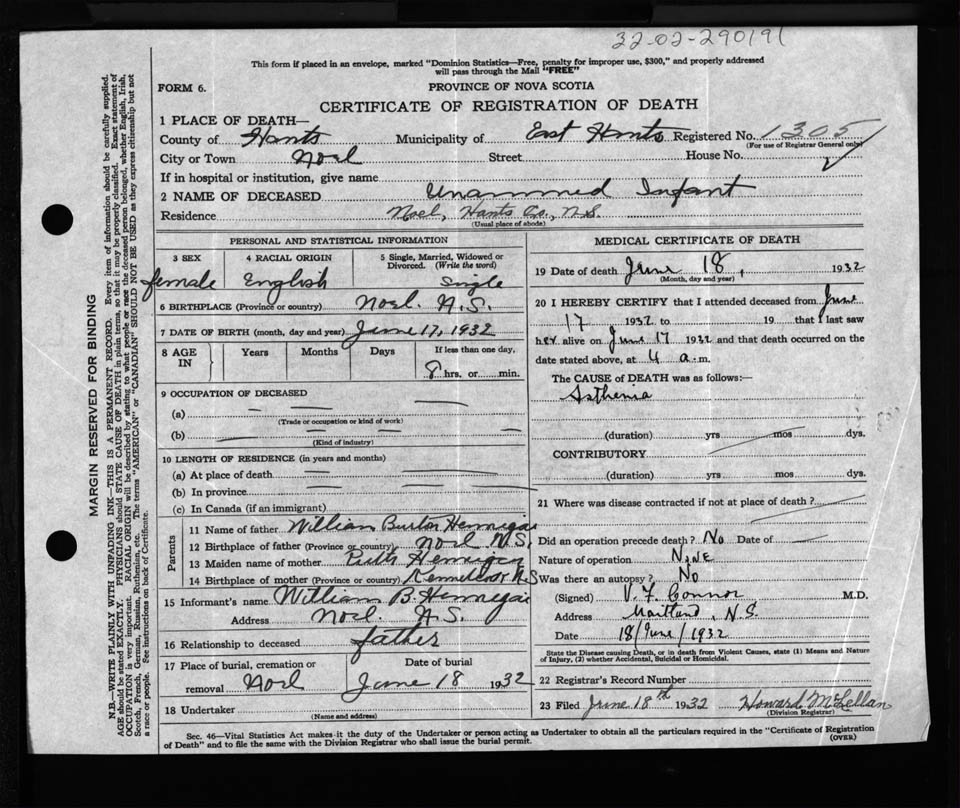 32-02-290191
This form if placed in an envelope, marked "Dominion Statistics—Free, penalty for improper use, $300," and properly addressed
will pass through the Mail "FREE"
FORM 6.
PROVINCE OF NOVA SCOTIA
CERTIFICATE OF REGISTRATION OF DEATH
1 PLACE OF DEATH—
County of Hants Municipality of East Hants Registered No. 1305
(For use of Registrar General only)
City or Town Noel Street House No.
If in hospital or institution, give name
2 NAME OF DECEASED Unammed Infant
Residence Noel, Hants Co., N.S.
(Usual place of abode)
PERSONAL AND STATISTICAL INFORMATION
3 SEX 4 RACIAL ORIGIN 5 Single, Married, Widowed or
Divorced. (Write the word)
female English Single
6 BIRTHPLACE (Province or country) Noel. N.S.
7 DATE OF BIRTH (month, day and year) June 17, 1932
8 AGE IN Years Months Days If less than one day,
8 hrs. or min.
9 OCCUPATION OF DECEASED
(a)
(Trade or occupation or kind of work)
(b)
(Kind of industry)
10 LENGTH OF RESIDENCE (in years and months)
(a) At place of death
(b) In province
(c) In Canada (if an immigrant)
Parents
11 Name of father William Burton Hennigar
12 Birthplace of father (Province or country) Noel N.S.
13 Maiden name of mother Ruth Hennigar
14 Birthplace of mother (Province or country) N.S
15 Informant's name William B. Hennigar
Address Noel. N.S.
16 Relationship to deceased father
17 Place of burial, cremation or Date of burial
removal Noel June 18 1932
18 Undertaker
(Name and address)
MEDICAL CERTIFICATE OF DEATH
19 Date of death June 18, 1932
(Month, day and year)
20 I HEREBY CERTIFY that I attended deceased from June
17 1932 to 19 that I last saw
her alive on June 17 1932 and that death occurred on the
date stated above, at 4 a.m.
The CAUSE OF DEATH was as follows:—
Asthenia
(duration) yrs mos dys.
CONTRIBUTORY
(duration) yrs. mos. dys.
21 Where was disease contracted if not at place of death?
Did an operation precede death? No Date of
Nature of operation None
Was there an autopsy? No
(Signed) V. F. Connor M.D.
Address Maitland, N.S.
Date 18/June/1932
State the Disease causing Death, or in death from Violent Causes, state (1) Means and Nature
of Injury, (2) whether Accidental, Suicidal or Homicidal.
22 Registrar's Record Number
23 Filed June 18th 1932 Howard McLellan
(Division Registrar)
Sec. 46—Vital Statistics Act makes it the duty of the Undertaker or person acting as Undertaker to obtain all the particulars required in the "Certificate of Registration
of Death" and to file the same with the Division Registrar who shall issue the burial permit.
(OVER)
MARGIN RESERVED FOR BINDING
N.B.—WRITE PLAINLY WITH UNFADING INK—THIS IS A PERMANENT RECORD. Every item of information should be carefully supplied.
AGE should be stated EXACTLY. PHYSICIANS should STATE CAUSE OF DEATH in plain terms, so that it may be properly classified. Exact statement of
OCCUPATION is very important. RACIAL ORIGIN will be described by stating to what people or race the deceased person belonged, whether English, Irish,
Scotch, French, German, Russian, Ruthenian, etc. The terms "AMERICAN" or "CANADIAN" SHOULD NOT BE USED as they express citizenship but not
a race or people. See instructions on back of Certificate.